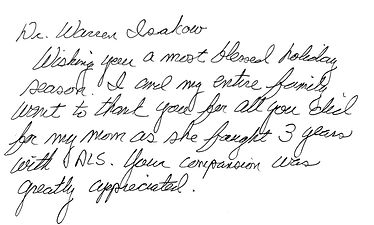 Dr. Warren Isakow
Wishing you a most blessed holiday
season. I and my entire family
want to thank you for all you did
for my mom as she fought 3 years
with ALS. Your compassion was
greatly appreciated.